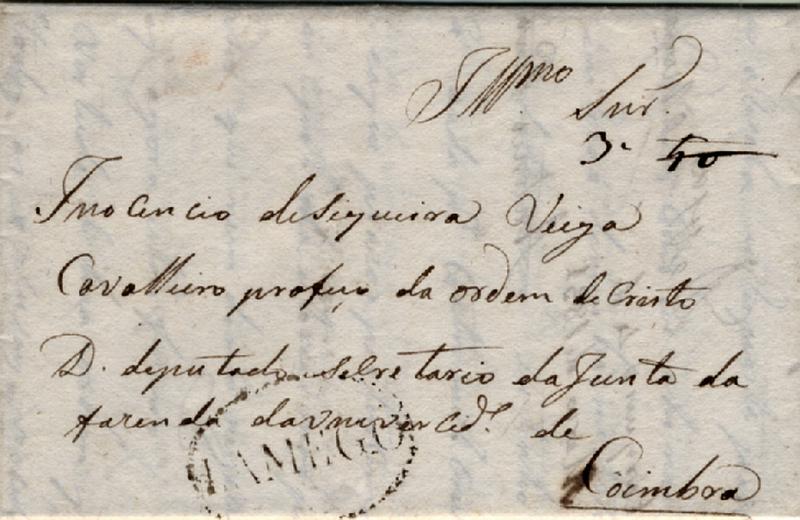 Illmo Snr.
3. 40
Inocencio de Siqueira Veiga
Cavalleiro profeço da ordem de Cristo
D. deputado secretario da Junta da
fazenda da vnivercid.e de
LAMEGO
Coimbra